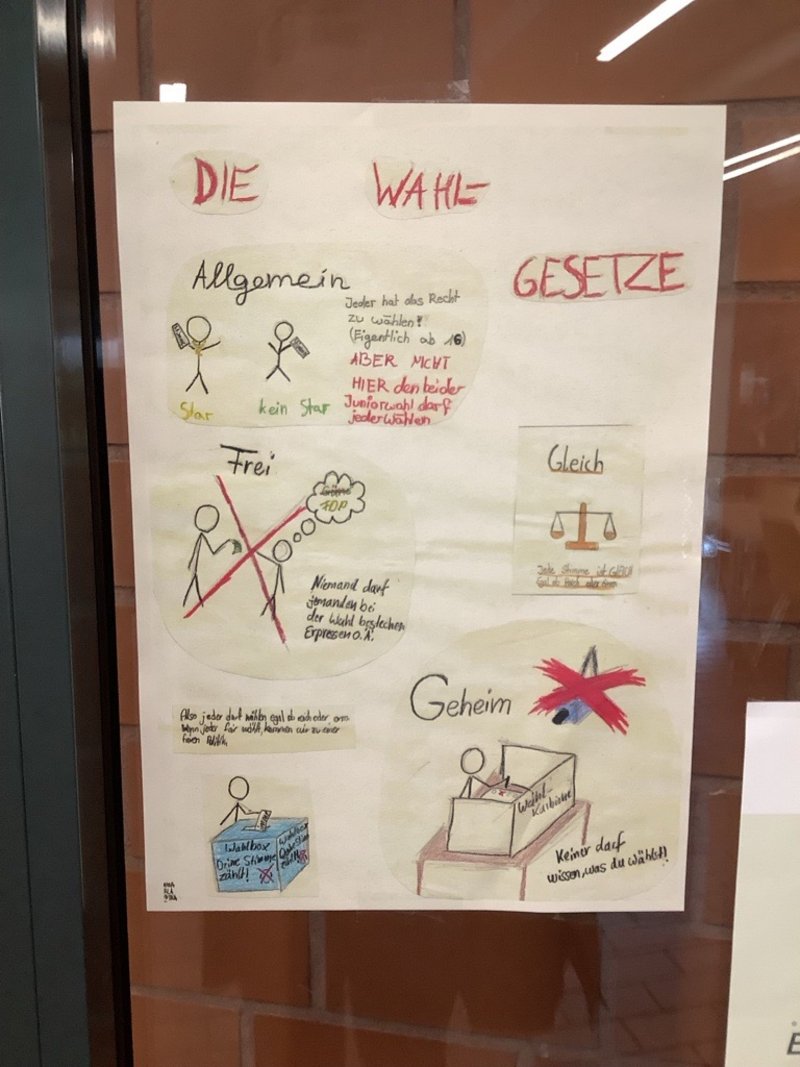 DIE WAHL-
GESETZE
Allgemein
Jeder hat das Recht
zu wählen!
(Eigentlich ab 16)
ABER NICHT
HIER den bei der
Juniorwahl darf
jeder wählen
Star
kein Star
Frei
FDP
Niemand darf
jemanden bei
der Wahl bestechen
Erpressen o.Ä.
Gleich
Jede Stimme ist GLEICH
Egal ob Reich oder Arm
Also jeder darf wählen egal ob reich oder arm
Wenn jeder fair wählt, kommen wir zu einer
freien Politik.
Geheim
Wahl-
Kabine
Keiner darf
wissen, was du wählst!
Wahlbox
Deine Stimme
zählt!
Wahlbox
zählt!